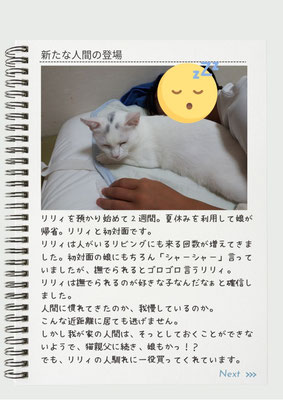 新たな人間の登場
zzz
リリィを預かり始めて2週間。夏休みを利用して娘が
帰省。リリィと初対面です。
リリィは人がいるリビングにも来る回数が増えてきま
した。初対面の娘にもちろん「シャーシャー」言って
いましたが、撫でられるとゴロゴロ言うリリィ。
リリィは撫でられるのが好きな子なんだなぁと確信し
ました。
人間に慣れてきたのか、我慢しているのか。
こんな近距離に居ても逃げません。
しかし我が家の人間は、そっとしておくことができな
いようで、猫親父に続き、娘もかっ！？
でも、リリィの人馴れに一役買ってくれています。
Next >>>